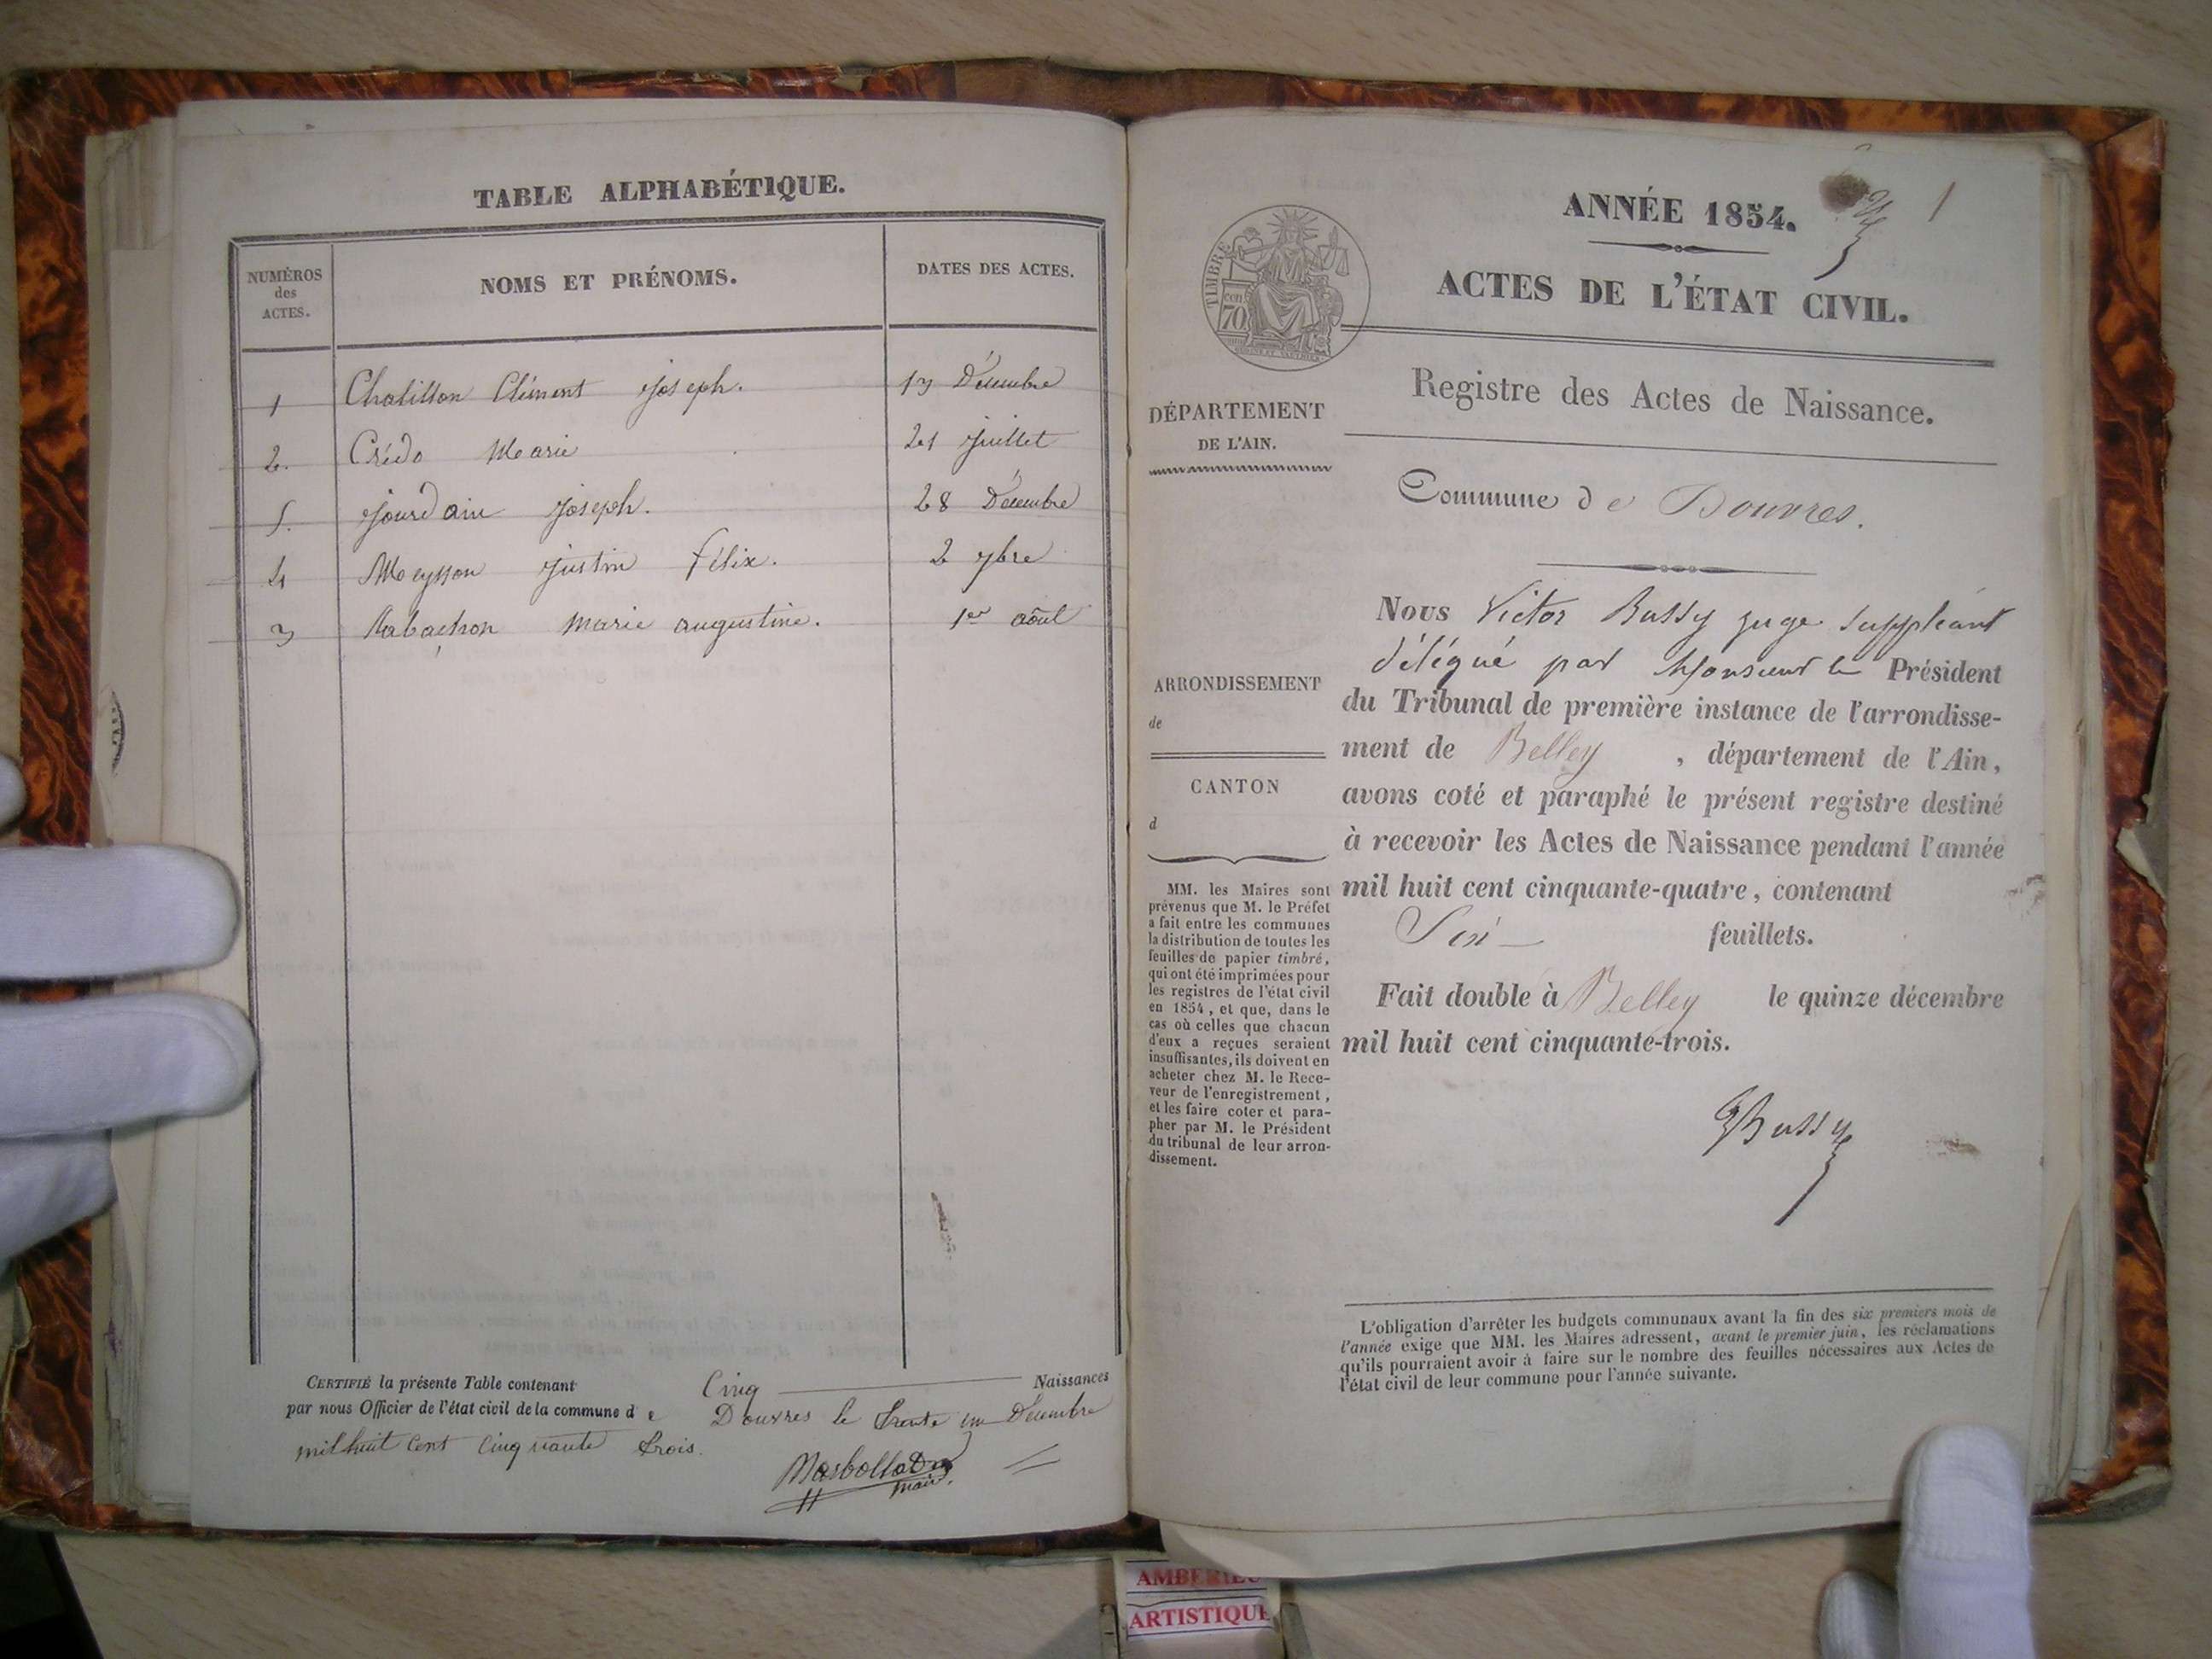 TABLE ALPHABÉTIQUE.
NUMÉROS des ACTES.
NOMS ET PRÉNOMS.
DATES DES ACTES.
1 Chatillon Clément Joseph. 13 Décembre
2. Crédo Marie 21 Juillet
5. Jourdain Joseph. 28 Décembre
4 Meysson Justin félix. 2 7bre
3 Marie augustine. 1er août
CERTIFIÉ la présente Table contenant Cinq Naissances
par nous Officier de l'état civil de la commune d e Douvres le trente un Décembre
mil huit Cent Cinquante trois.
maire.
ANNÉE 1854.
1
ACTES DE L'ÉTAT CIVIL.
TIMBRE
70
Registre des Actes de Naissance.
DÉPARTEMENT
DE L'AIN.
Commune de Douvres.
Nous Victor Bussy juge suppléant
délégué par Monsieur le Président
du Tribunal de première instance de l'arrondisse-
ment de Belley , département de l'Ain,
avons coté et paraphé le présent registre destiné
à recevoir les Actes de Naissance pendant l'année
mil huit cent cinquante-quatre, contenant
Six feuillets.
Fait double à Belley le quinze décembre
mil huit cent cinquante-trois.
Bussy
ARRONDISSEMENT
de
CANTON
d
MM. les Maires sont
prévenus que M. le Préfet
a fait entre les communes
la distribution de toutes les
feuilles de papier timbré,
qui ont été imprimées pour
les registres de l'état civil
en 1854, et que, dans le
cas où celles que chacun
d'eux a reçues seraient
insuffisantes, ils doivent en
acheter chez M. le Rece-
veur de l'enregistrement,
et les faire coter et para-
pher par M. le Président
du tribunal de leur arron-
dissement.
L'obligation d'arrêter les budgets communaux avant la fin des six premiers mois de
l'année exige que MM. les Maires adressent, avant le premier juin, les réclamations
qu'ils pourraient avoir à faire sur le nombre des feuilles nécessaires aux Actes de
l'état civil de leur commune pour l'année suivante.
ARTISTIQUE